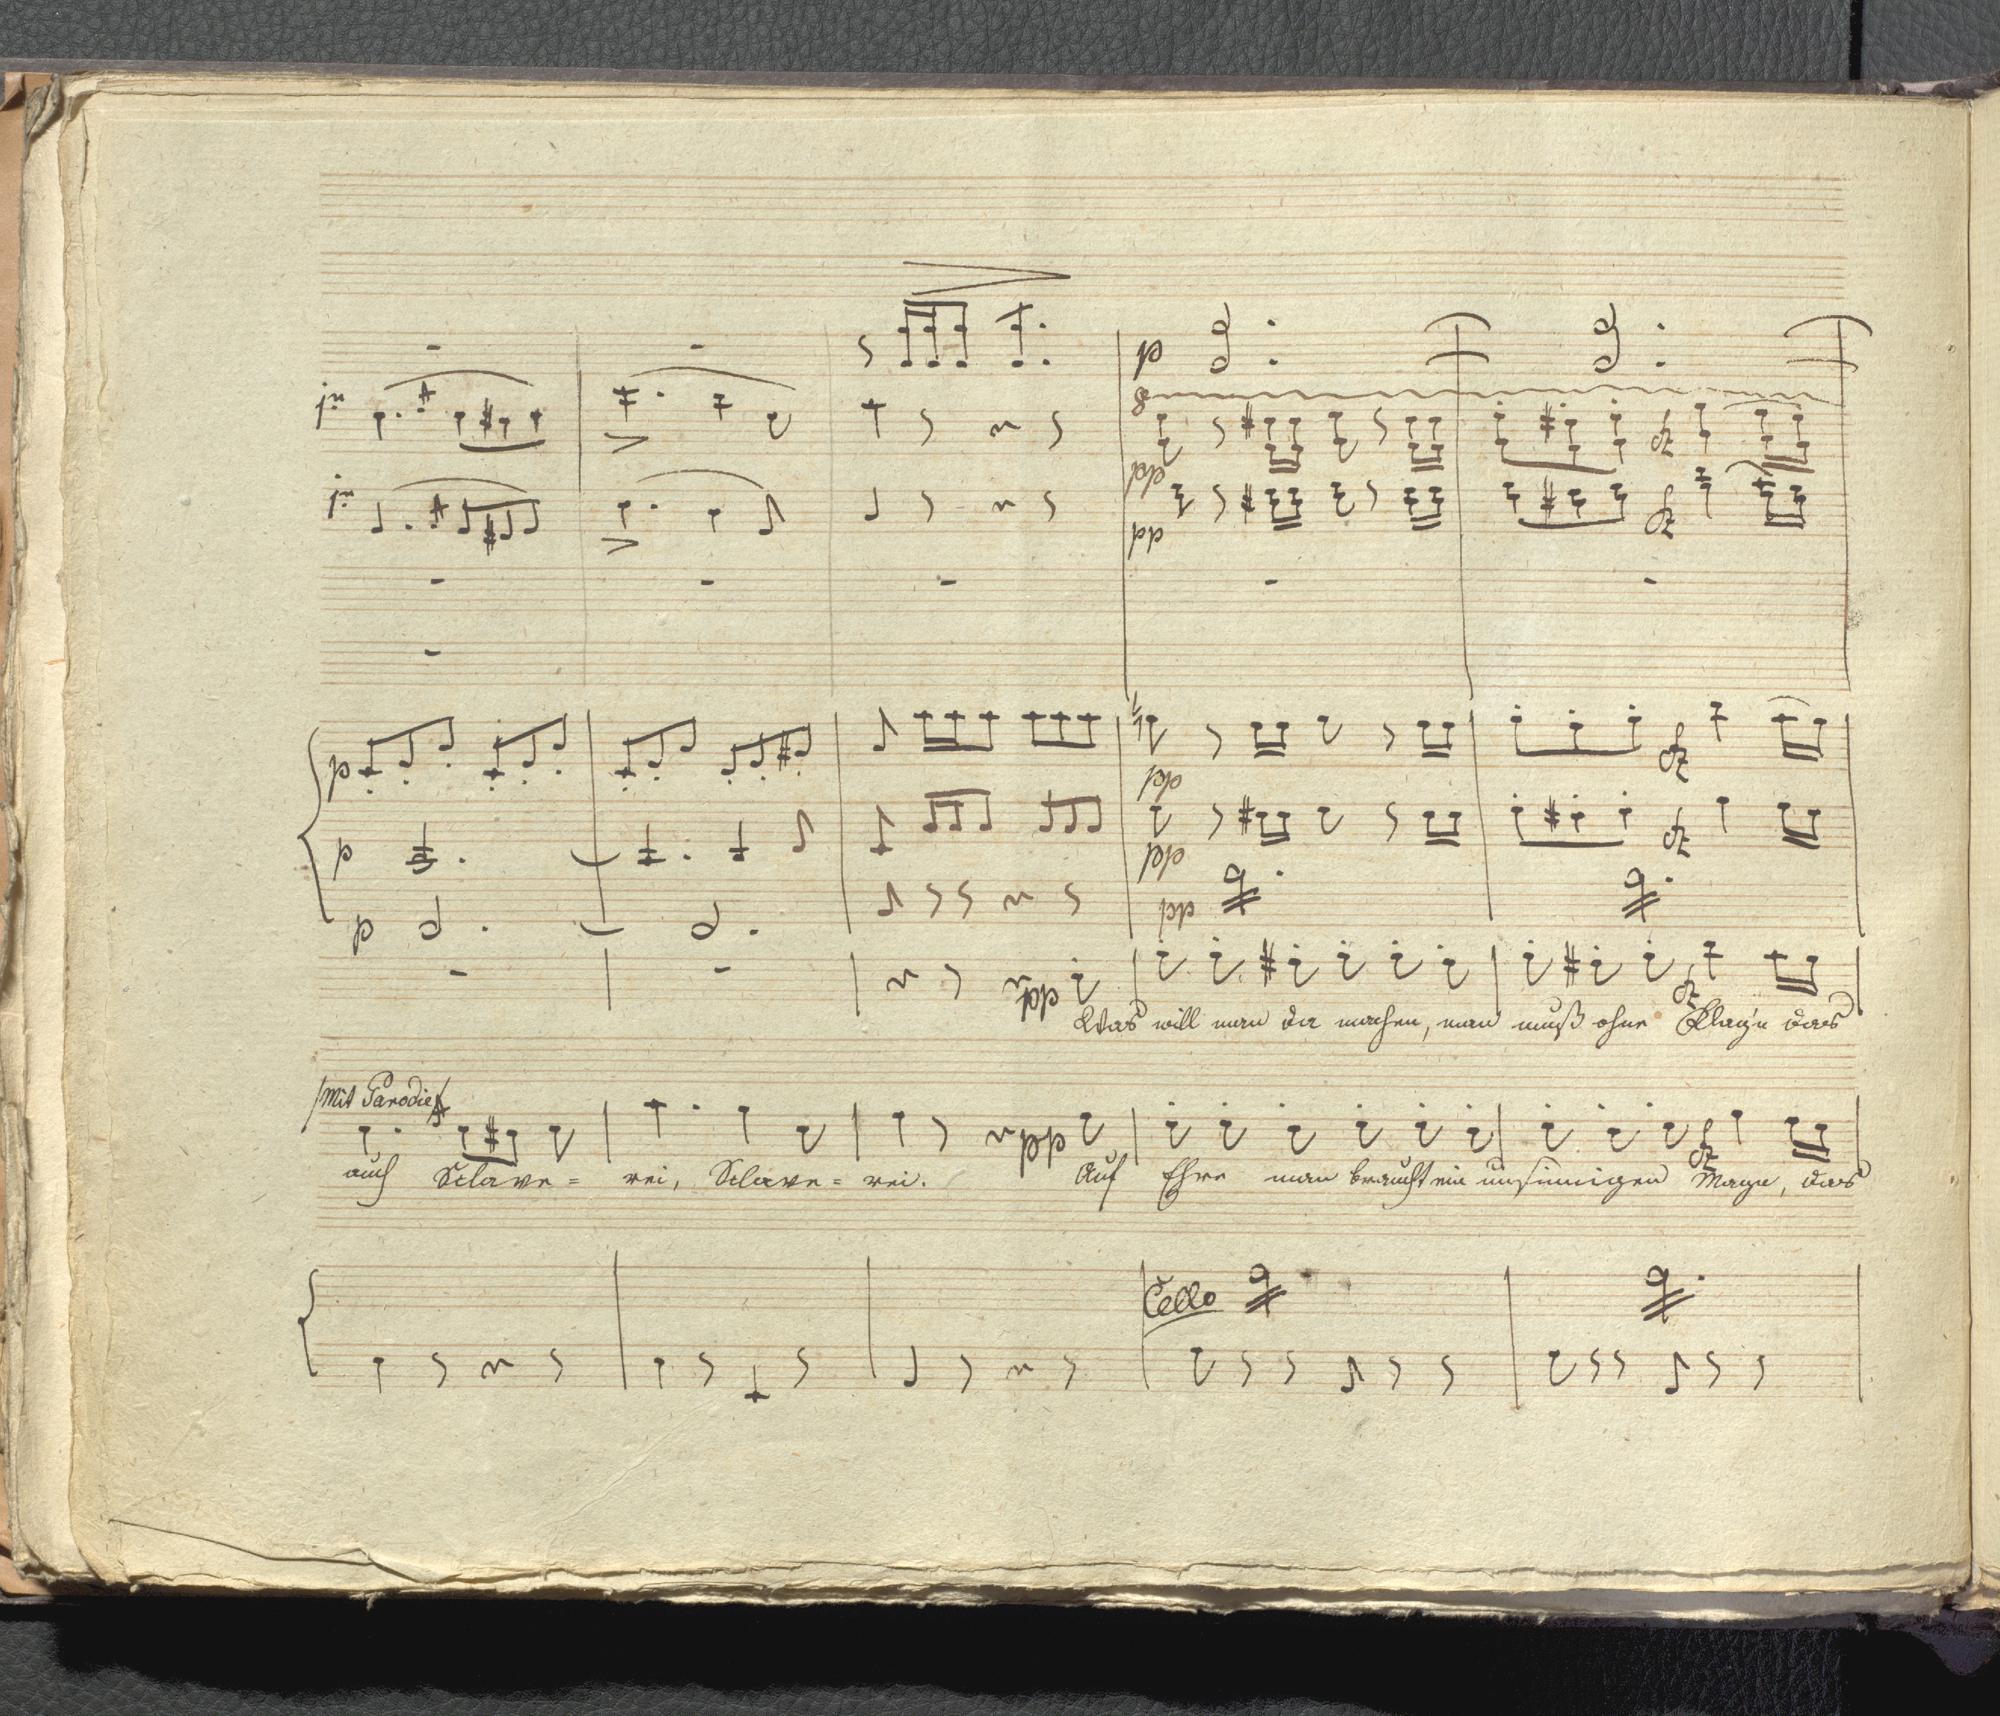 p
8
pp
pp
p
pp
p
pp
p
pp
pp
Was will man da machen, man muß ohne Klag'n das
Mit Parodie
pp
auch Sclave = rei, Sclave = rei. Auf Ehre man braucht ein unsinnigen Magn, das
Cello